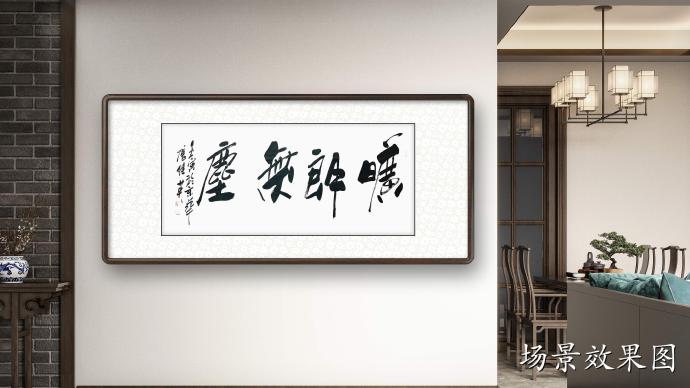 曠朗無塵
场景效果图